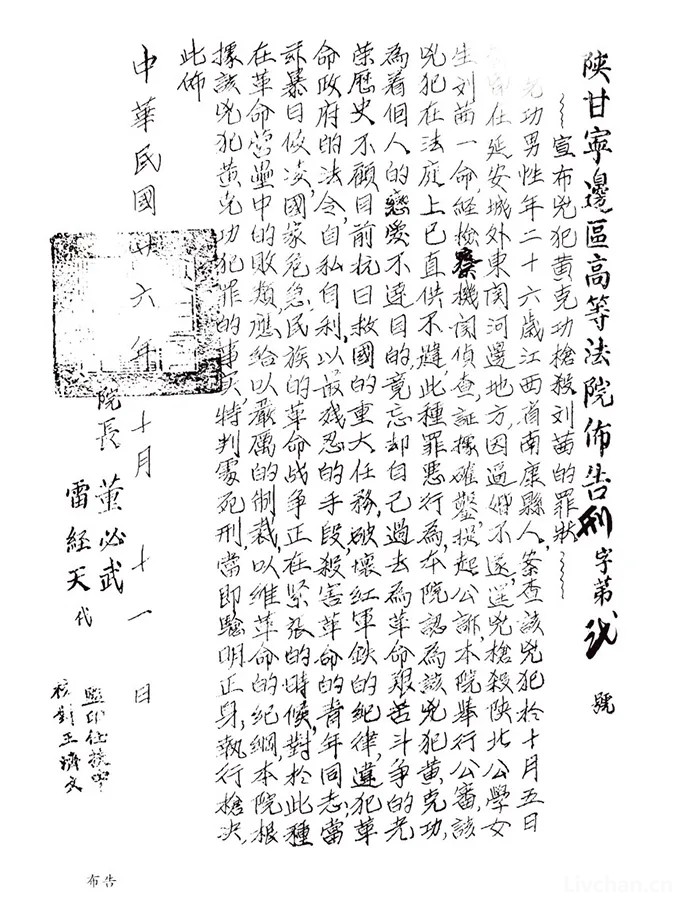 陝甘寧邊區高等法院佈告刑字第弍號
宣布兇犯黃克功槍殺刘茜的罪狀
克功男性年二十六歲江西省南康縣人,案查該兇犯於十月五日
在延安城外東関河邊地方,因逼婚不遂,逞兇槍殺陝北公學女
生刘茜一命,經檢察機関偵查証據確鑿,提起公訴,本院舉行公審,該
兇犯在法庭上已直供不諱,此種罪惡行為,本院認為該兇犯黃克功,
為着個人的戀愛不達目的,竟忘却自己過去為革命艰苦斗争的光
荣歷史不顧目前抗日救國的重大任務,破壞紅軍鉄的紀律,違犯革
命政府的法令,自私自利,以最残忍的手段,殺害革命的青年同志,當
茲暴日侵凌,國家危急,民族的革命战争正在緊张的時候,對於此種
在革命营壘中的敗類,應給以嚴厲的制裁,以維革命的紀綱,本院根
據該兇犯黃克功犯罪的事实,特判處死刑,當即驗明正身,執行槍决,
此佈
中華民國廿六年十月十一日
院長 董必武
雷經天 代
監印任扶中
核對王濟文
布告
Livchan.cn